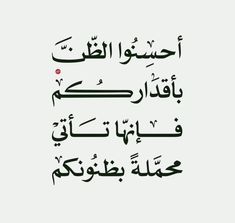 أحسِنُوا الظّنَّ
بأقدَاركُمْ
فإنهّا تَأتيْ
محمّلةً بظنُونكم